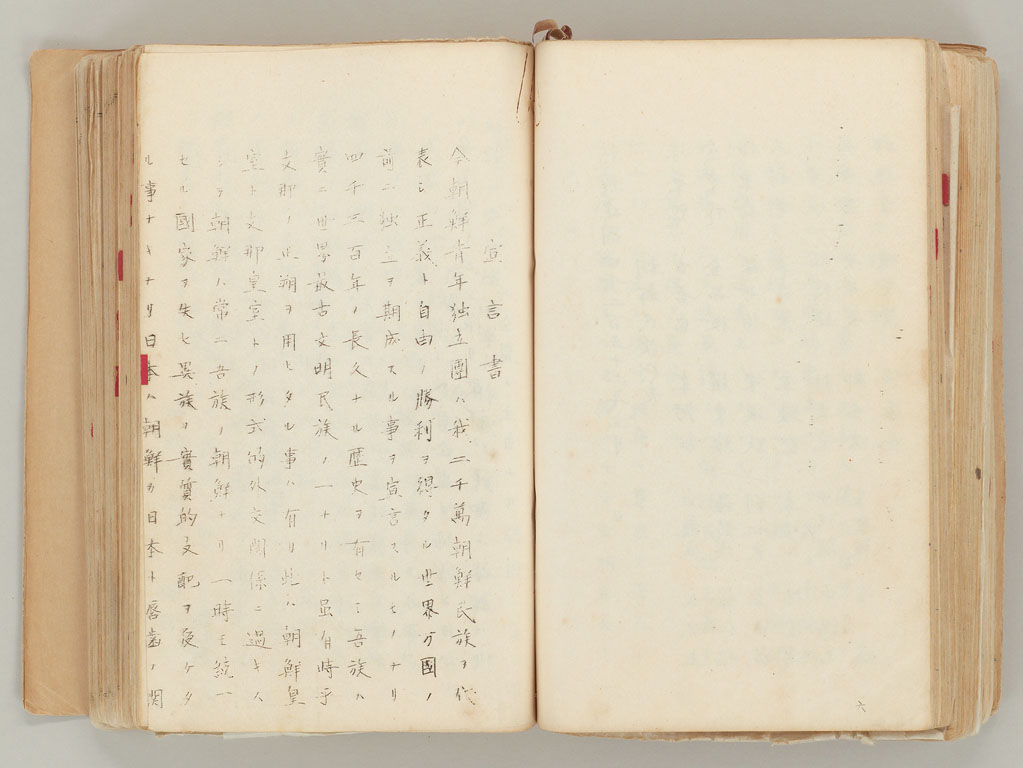 宣言書
全朝鮮青年独立團ハ我二千萬朝鮮民族ヲ代
表シ正義ト自由ノ勝利ヲ得タル世界ノ國ノ
前ニ独立ヲ期成スル事ヲ宣言スルモノナリ
四千三百年ノ長久ナル歴史ヲ有セシ吾族ハ
實ニ世界最古文明民族ノ一ナリト虽有時乎
支那ノ正朔ヲ用ヒタル事ハ有リ此ハ朝鮮皇
室ト支那皇室トノ形式的外交関係ニ過キス
シテ朝鮮ハ常ニ吾族ノ朝鮮ナリ一時モ統一
セル國家ヲ失ヒ異族ノ實質的支配ヲ受ケタ
ル事ナキナリ日本ハ朝鮮カ日本ト唇齒ノ関
六